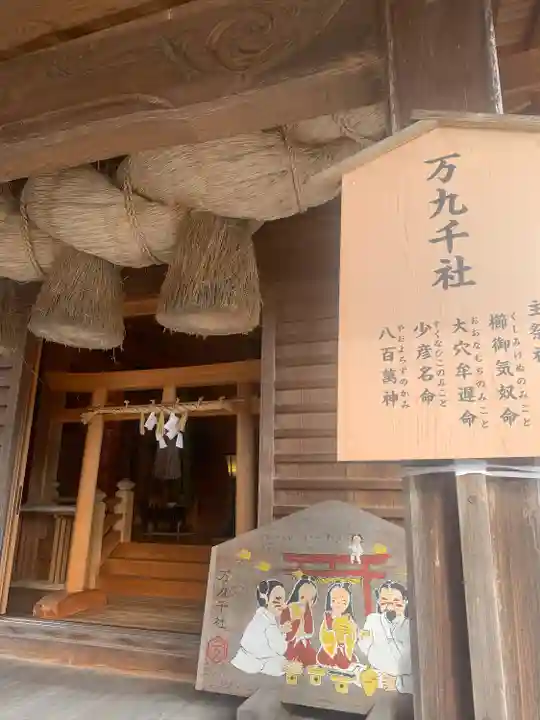 万九千社
主祭神
櫛御気奴命
くしみけぬのみこと
大穴牟遅命
おおなむちのみこと
少彦名命
すくなひこのみこと
八百萬神
やおよろずのかみ
万九千社